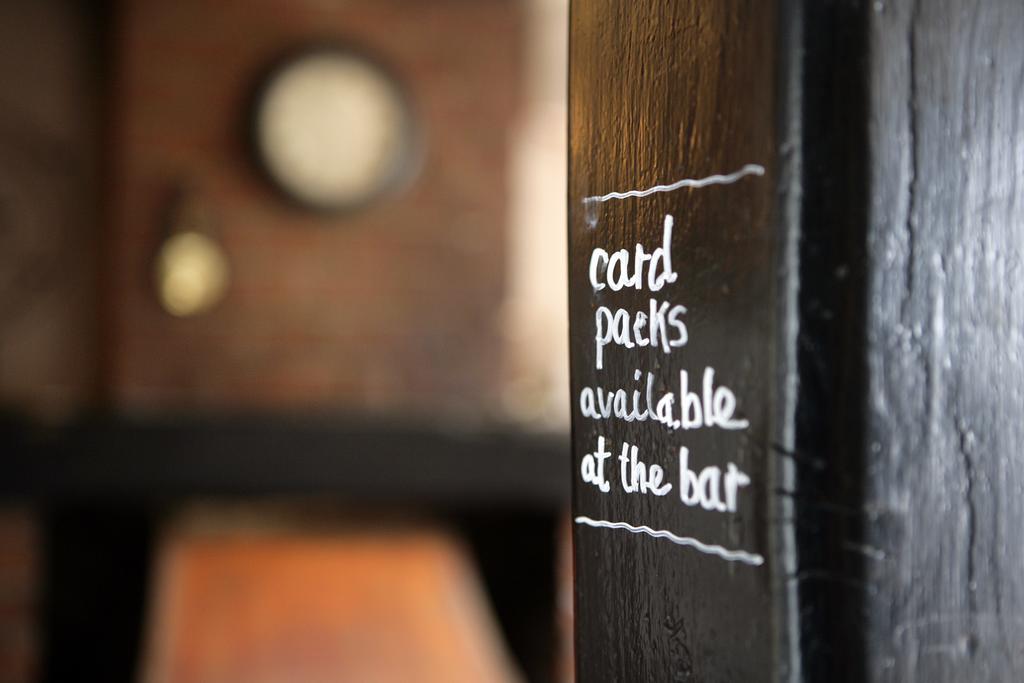 card
packs
available
at the bar